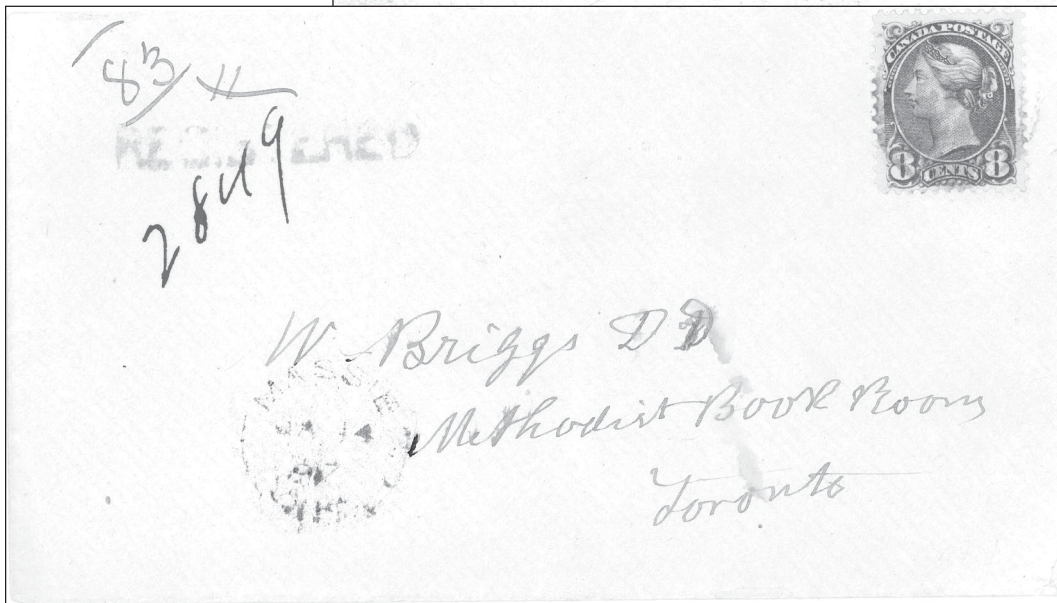 83/11
REGISTERED
28419
CANADA POSTAGE
8 CENTS 8
W. Briggs DD
Methodist Book Room
Toronto
MASSIE
14
97